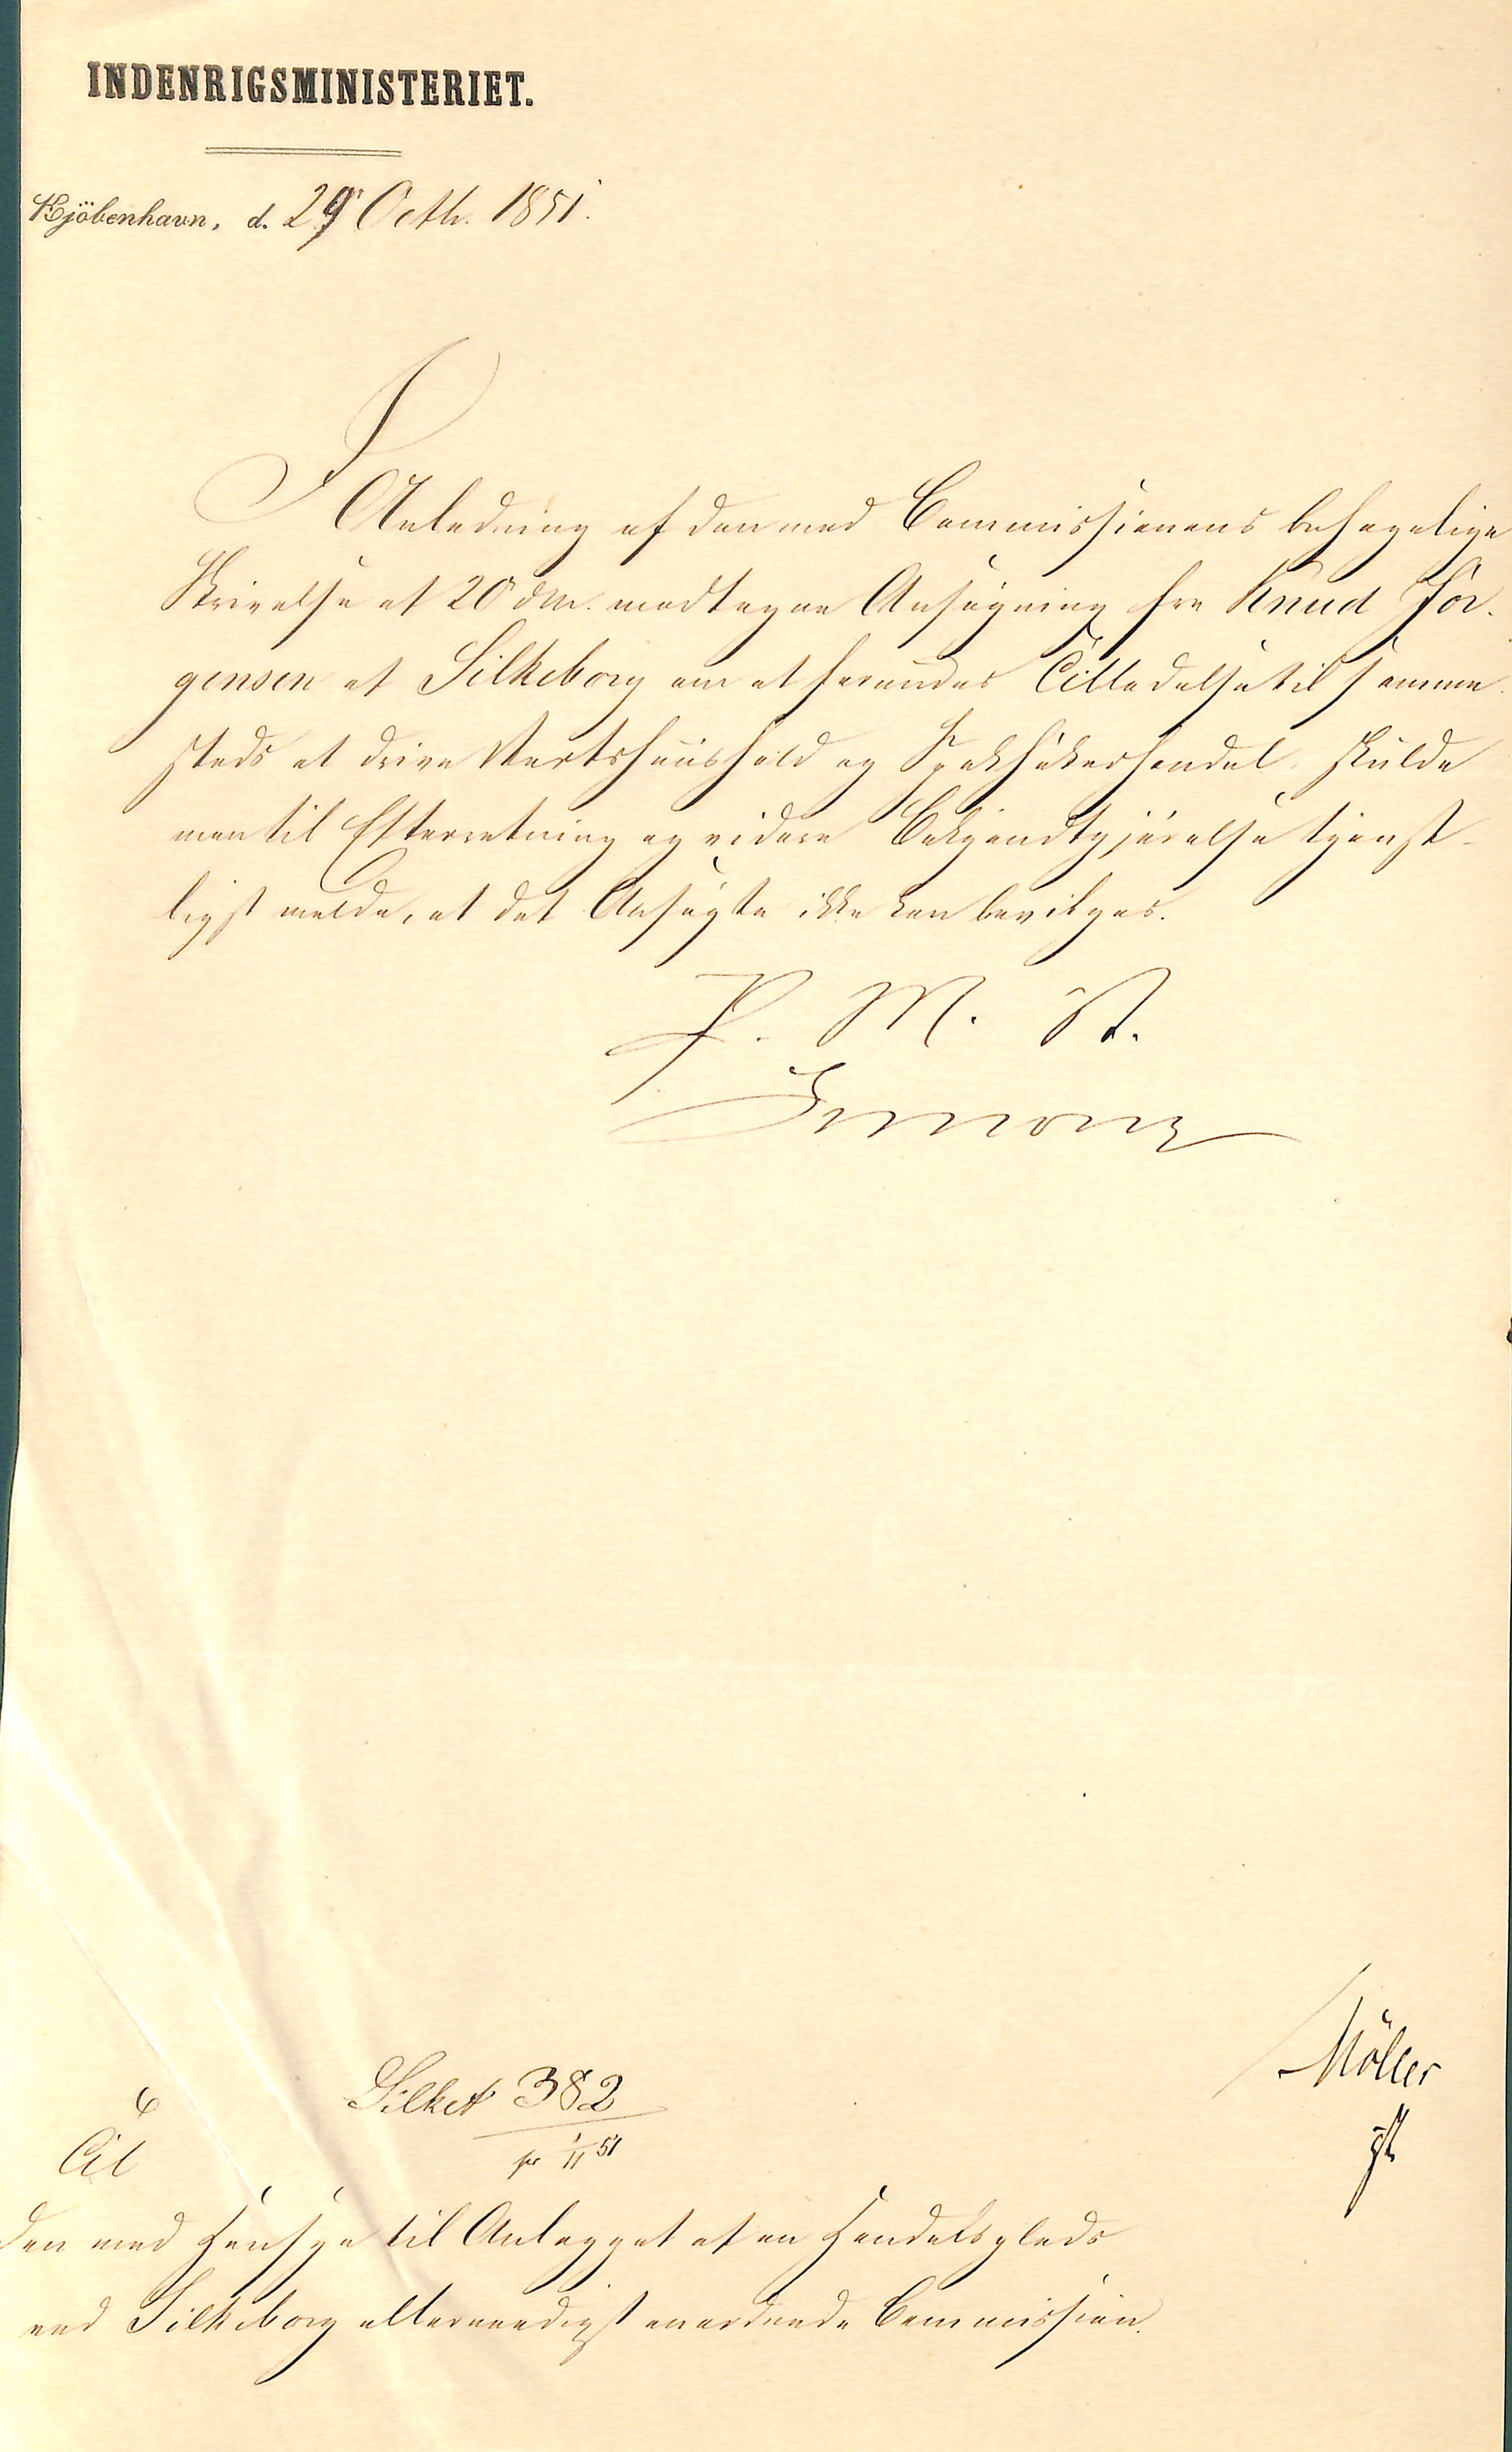 INDENRIGSMINISTERIET.
Kjöbenhavn, d. 29' Octb. 1851.
I
Anledning af den med Commissionens behagelige
Skrivelse af 20 d. M. modtagne Ansøgning fra Knud Jør-
gensen af Silkeborg om at forundes Tilladelse til samme-
steds at drive Værtshuushold og Spekhøkerhandel, skulde
man til Efterretning og videre Bekjendtgjørelse tjenst-
ligst melde, at det Ansøgte ikke kan bevilges.
P. M. V.
Simony
Möller
Silkeb 382
pr 1/11 51
Til
den med Hensyn til Anlægget af en Handelsplads
ved Silkeborg allernaadigst anordnede Commission.